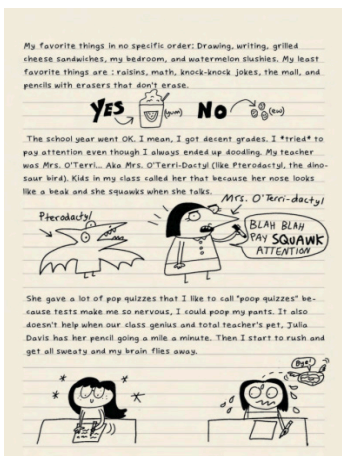 My favorite things in no specific order: Drawing, writing, grilled
cheese sandwiches, my bedroom, and watermelon slushies. My least
favorite things are : raisins, math, knock-knock jokes, the mall, and
pencils with erasers that don't erase.
YES (yum) NO (ew)
The school year went OK. I mean, I got decent grades. I *tried* to
pay attention even though I always ended up doodling. My teacher
was Mrs. O'Terri... Aka Mrs. O'Terri-Dactyl (like Pterodactyl, the dino-
saur bird). Kids in my class called her that because her nose looks
like a beak and she squawks when she talks.
Pterodactyl
Mrs. O'Terri-dactyl
BLAH BLAH
PAY SQUAWK
ATTENTION
She gave a lot of pop quizzes that I like to call "poop quizzes" be-
cause tests make me so nervous, I could poop my pants. It also
doesn't help when our class genius and total teacher's pet, Julia
Davis has her pencil going a mile a minute. Then I start to rush and
get all sweaty and my brain flies away.
Bye!